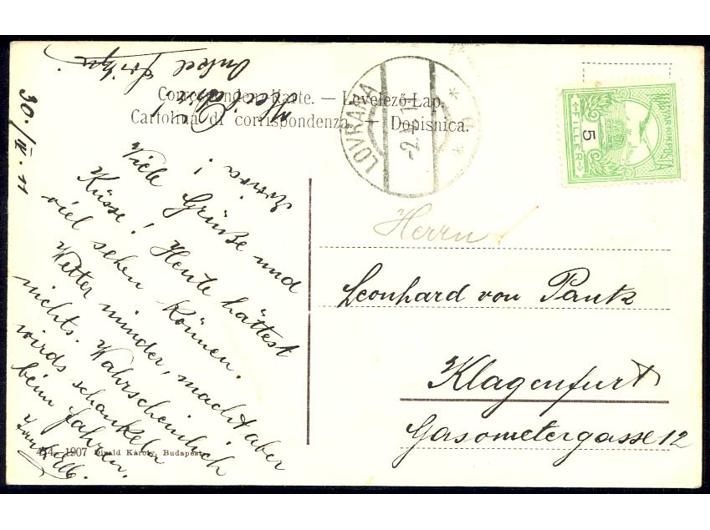 Correspondenz-Karte. — Levelező-Lap.
Cartolina di corrispondenza. — Dopisnica.
LOVRANA
MAGYAR KIR. POSTA
5
FILLER
30./IV. 11
Onkel
Viele Grüße und
Küsse! Heute hättest
viel sehen können.
Wetter minder, macht aber
nichts. Wahrscheinlich
wirds schaukeln
beim fahren.
Herrn
Leonhard von Pantz
Klagenfurt
Gasometergasse 12
1907 Divald Károly, Budapest